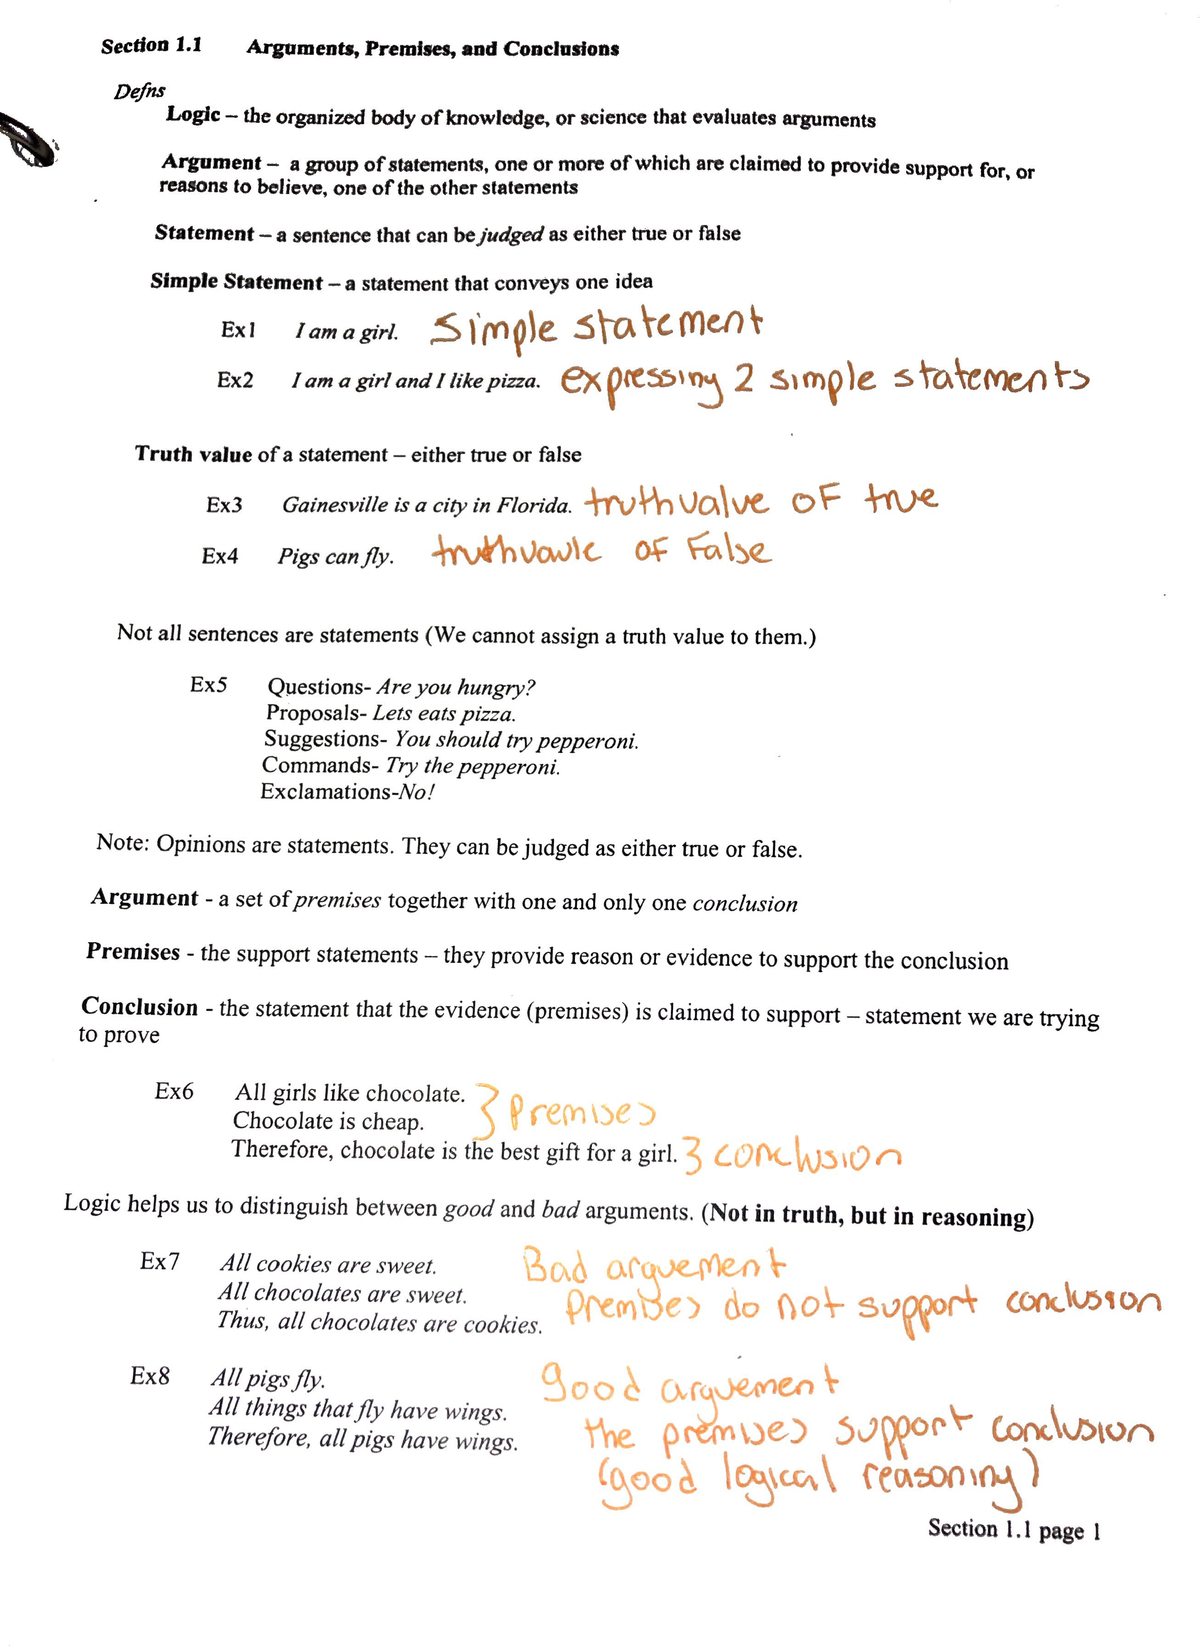 Section 1.1 Arguments, Premises, and Conclusions
Defns
Logic – the organized body of knowledge, or science that evaluates arguments
Argument – a group of statements, one or more of which are claimed to provide support for, or
reasons to believe, one of the other statements
Statement – a sentence that can be judged as either true or false
Simple Statement – a statement that conveys one idea
Ex1 I am a girl. Simple statement
Ex2 I am a girl and I like pizza. expressing 2 simple statements
Truth value of a statement – either true or false
Ex3 Gainesville is a city in Florida. truth value of true
Ex4 Pigs can fly. truthvawle of False
Not all sentences are statements (We cannot assign a truth value to them.)
Ex5 Questions- Are you hungry?
Proposals- Lets eats pizza.
Suggestions- You should try pepperoni.
Commands- Try the pepperoni.
Exclamations-No!
Note: Opinions are statements. They can be judged as either true or false.
Argument - a set of premises together with one and only one conclusion
Premises - the support statements – they provide reason or evidence to support the conclusion
Conclusion - the statement that the evidence (premises) is claimed to support – statement we are trying
to prove
Ex6 All girls like chocolate.
Chocolate is cheap. } Premises
Therefore, chocolate is the best gift for a girl. } conclusion
Logic helps us to distinguish between good and bad arguments. (Not in truth, but in reasoning)
Ex7 All cookies are sweet. Bad arguement
All chocolates are sweet. Premises do not support conclusion
Thus, all chocolates are cookies.
Ex8 All pigs fly. good arguement
All things that fly have wings. the premises support conclusion
Therefore, all pigs have wings. (good logical reasoning)
Section 1.1 page 1